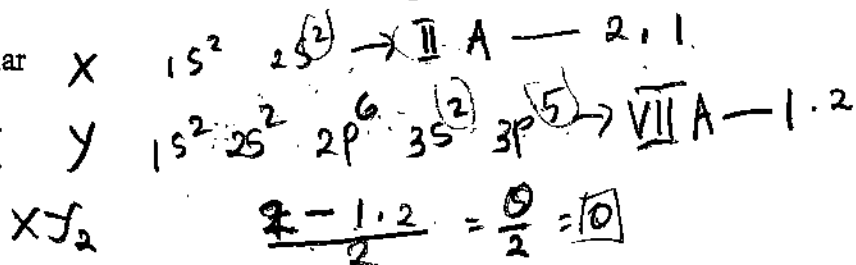 ar X 1s² 2s² → II A — 2.1.
Y 1s² 2s² 2p⁶ 3s² 3p⁵ → VII A — 1.2
XY₂ 2 - 1.2 / 2 = 0/2 = 0